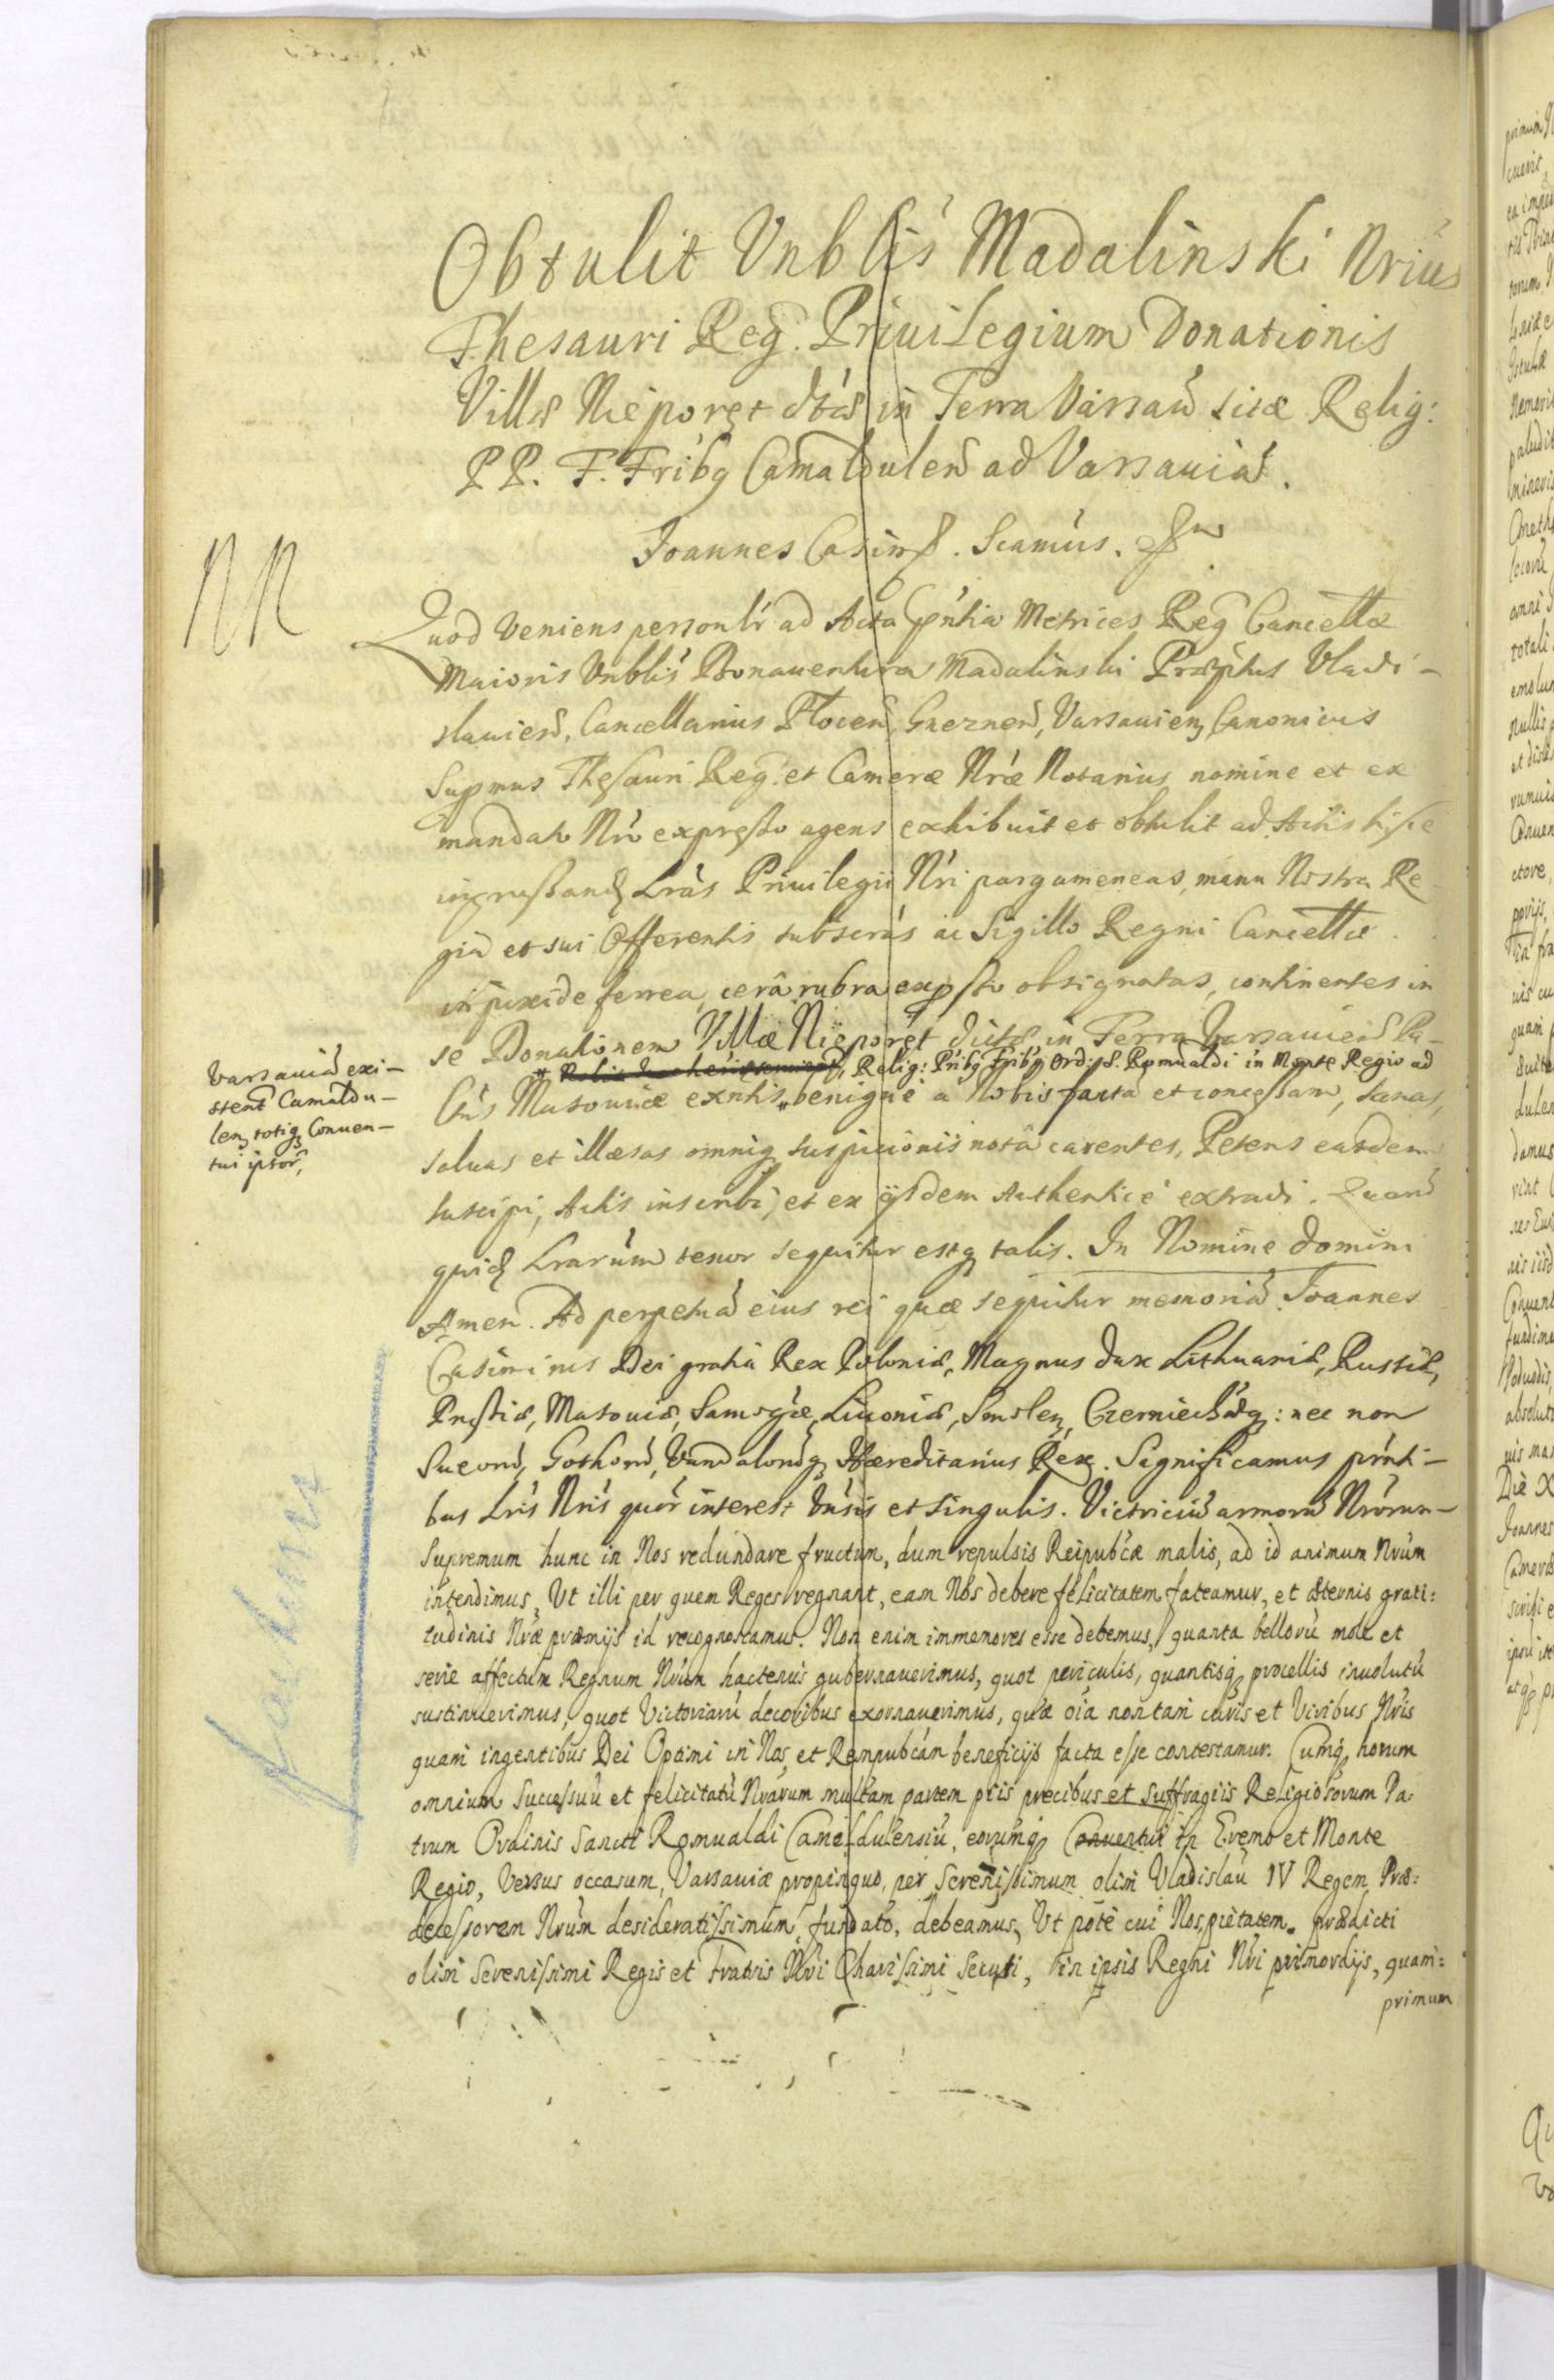 Obtulit Vnblis Madalinski Nrius
Thesauri Reg. Priuilegium Donationis
Villæ Nieporęt dtæ in Terra Varsau sitæ Relig:
PP. F. Fribq Camaldulen ad Varsauiã.
Joannes Casim. Scamus.
NN
Quod veniens personlr ad Acta pñtia Metrices Reg Cancellæ
Maioris Vnblis Bonauentura Madalinski Præptus Vladi-
slauien, Cancellarius Plocen, Gneznen, Varsauien Canonicus
Supmus Thesauri Reg. et Cameræ Nræ Notarius nomine et ex
mandato Nro expresso agens exhibuit et obtulit ad Actis hisce
ingrossand Lras Priuilegii Nri pargameneas, manu Nostra Re
gia et sui Offerentis subscras ac Sigillo Regni Cancellæ
in pixide ferrea, cerâ rubra expsso obsignatas, continentes in
se Donationem Villæ Nieporęt dictæ in Terra Varsauien Du-
Relig: Pribq Fribq Ord: S. Romualdi in Monte Regio ad
Varsauiã exi-
stent Camaldu-
len totiq Conuen-
tui ipsor,
ctus Masouiæ exntis, benigne a Nobis factã et concessam, sanas,
saluas et illæsas omniq suspicionis notâ carentes, Petens easdem
suscipi, Actis inscribi, et ex ijsdem Authentice extradi. Quarũ
quid Lrarum tenor sequitur estq talis. In Nomine Domini
Amen. Ad perpetuã eius rei quæ sequitur memoriã. Joannes
Casimirus Dei gratia Rex Poloniæ, Magnus Dux Lithuaniæ, Russiæ,
Prussiæ, Masouiæ, Samogiæ, Liuoniæ, Smolen, Czerniechouq: nec non
Sueorũ, Gothorũ, Vandalorũq Hæreditarius Rex. Significamus prnti-
bus Lris Nris quor interest Vnsis et singulis. Victriciũ armorũ Nrorum
Supremum hunc in Nos redundare fructum, dum repulsis Reipubcæ malis, ad id animum Nrum
intendimus, Vt illi per quem Reges regnant, eam Nos debere felicitatem fateamur, et æternis grati:
tudinis Nræ præmijs id recognoscamus. Non enim immemores esse debemus, quanta bellorũ mole et
serie affectum Regnum Nrum hactenus gubernauerimus, quot periculis, quantisq procellis inuolutũ
sustinuerimus, quot Victoriarũ decoribus exornauerimus, quæ oia non tam curis et Viribus Nris
quam ingentibus Dei Optimi in Nos, et Rempubcan beneficijs facta esse contestamur. Cumq horum
omnium Successuũ et felicitatũ Nrarum multam partem piis precibus et suffragiis Religiosorum Pa:
trum Ordinis Sancti Romualdi Camaldulensiũ, eorumq Conuentui in Eremo et Monte
Regio, Versus occasum, Varsauiæ propinquo, per Serenissimum olim Vladislaũ IV Regem Præ:
decessorem Nrum desideratissimum, fundato, debeamus, Vt pote cui Nos, pietatem prædicti
olim Serenissimi Regis et Fratris Nri Charissimi Secuti, in ipsis Regni Nri primordijs, quam:
primum